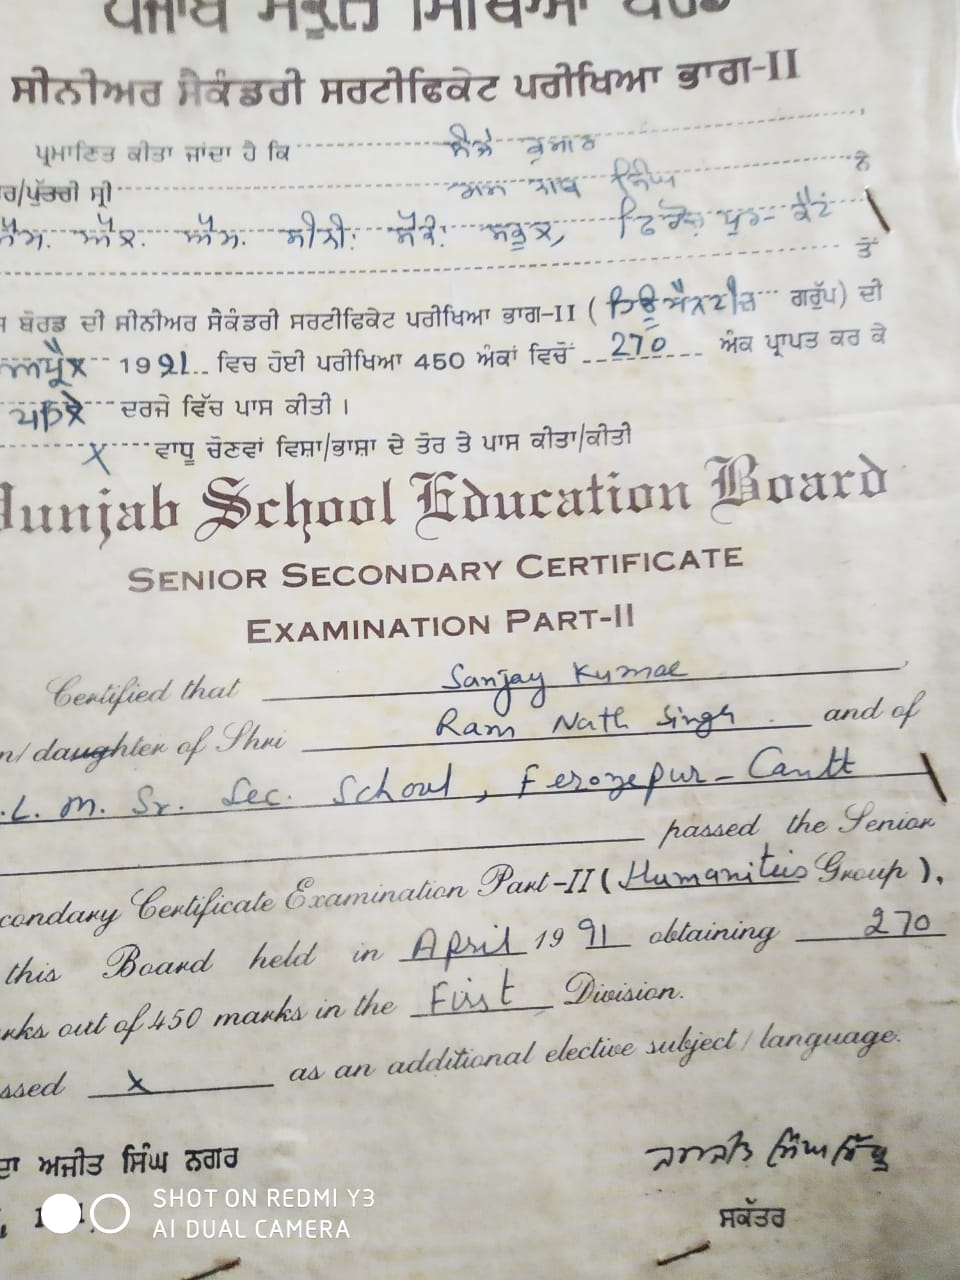 ਪੰਜਾਬ ਸਕੂਲ ਸਿੱਖਿਆ ਬੋਰਡ
ਸੀਨੀਅਰ ਸੈਕੰਡਰੀ ਸਰਟੀਫਿਕੇਟ ਪਰੀਖਿਆ ਭਾਗ-II
ਪ੍ਰਮਾਣਿਤ ਕੀਤਾ ਜਾਂਦਾ ਹੈ ਕਿ ਸੰਜੇ ਕੁਮਾਰ
/ਪੁੱਤਰੀ ਸ੍ਰੀ ਰਾਮ ਨਾਥ ਸਿੰਘ ਨੇ
ਐਮ. ਐਲ. ਐਮ. ਸੀਨੀ: ਸੈਕੰ: ਸਕੂਲ, ਫਿਰੋਜ਼ਪੁਰ-ਕੈਂਟ
ਤੋਂ
ਬੋਰਡ ਦੀ ਸੀਨੀਅਰ ਸੈਕੰਡਰੀ ਸਰਟੀਫਿਕੇਟ ਪਰੀਖਿਆ ਭਾਗ-II ( ਹਿਊਮੈਨਟੀਜ਼ ਗਰੁੱਪ) ਦੀ
ਅਪ੍ਰੈਲ 1991 ਵਿਚ ਹੋਈ ਪਰੀਖਿਆ 450 ਅੰਕਾਂ ਵਿਚੋਂ 270 ਅੰਕ ਪ੍ਰਾਪਤ ਕਰ ਕੇ
ਪਹਿਲੇ ਦਰਜੇ ਵਿੱਚ ਪਾਸ ਕੀਤੀ ।
X ਵਾਧੂ ਚੋਣਵਾਂ ਵਿਸ਼ਾ/ਭਾਸ਼ਾ ਦੇ ਤੋਰ ਤੇ ਪਾਸ ਕੀਤਾ/ਕੀਤੀ
Punjab School Education Board
SENIOR SECONDARY CERTIFICATE
EXAMINATION PART-II
Certified that Sanjay Kumar,
n/daughter of Shri Ram Nath Singh and of
.L. M. Sr. Sec. School, Ferozepur-Cantt
passed the Senior
condary Certificate Examination Part-II ( Humanities Group ),
this Board held in April 1991 obtaining 270
rks out of 450 marks in the First Division.
ssed X as an additional elective subject / language.
ਅਜੀਤ ਸਿੰਘ ਨਗਰ
ਸਕੱਤਰ
SHOT ON REDMI Y3
AI DUAL CAMERA